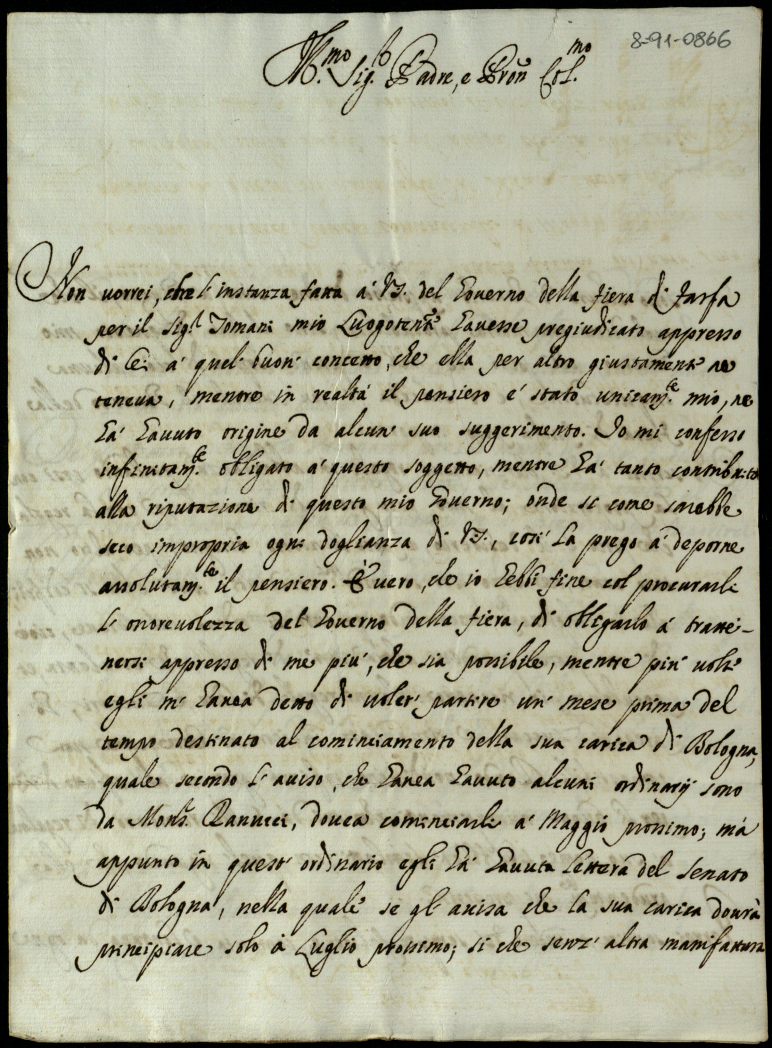 8-91-0866
Ill.mo Sig.r Padre, e Pron Col.mo
Non vorrei, che l'instanza fatta à VS. del Governo della fiera di Farfa
per il Sig.r Tomani mio Luogotenẽte havesse pregiudicato appresso
di Lei à quel buon' concetto, che ella per altro giustamente ne
teneva, mentre in realtà il pensiero è stato unicam.te mio, ne
hà havuto origine da alcun' suo suggerimento. Io mi confesso
infinitam.te obligato à questo soggetto, mentre hà tanto contribuito
alla riputazione di questo mio Governo; onde si come sarebbe
seco impropria ogni doglianza di VS., così la prego à deporne
assolutam.te il pensiero. È vero, che io hebbi fine col procurarli
l'onorevolezza del Governo della fiera, di obligarlo à tratte-
nersi appresso di me più, che sia possibile, mentre più volte
egli m' havea detto di voler' partire un' mese prima del
tempo destinato al cominciamento della sua carica di Bologna,
quale secondo l'aviso, che havea havuto alcuni ordinarij sono
da Mons.r Ranucci, dovea cominciarli à Maggio prossimo; mà
appunto in quest' ordinario egli hà havuta lettera del Senato
di Bologna, nella quale se gl'avisa che la sua carica dovrà
principiare solo à Luglio prossimo; si che senz' altra manifattura